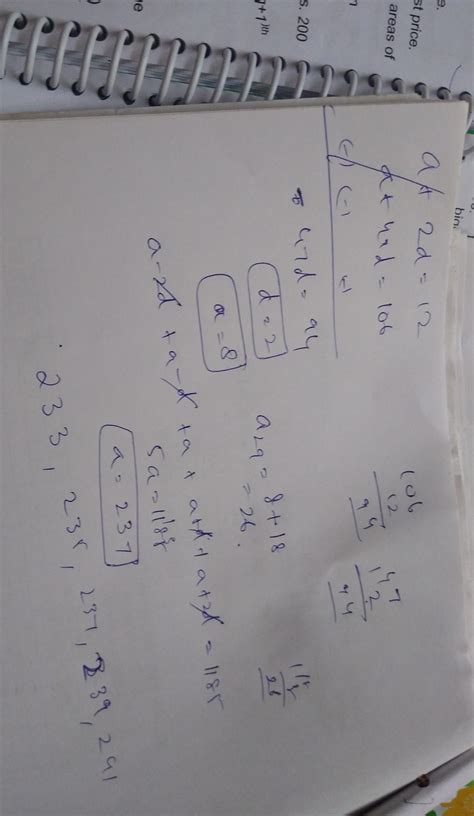 st price.
areas of
s. 200
g+1)th
a + 2d = 12
a + 49d = 106
(-) (-) (-)
47d = 94
d = 2
a = 8
106
12
94
147
2
44
a29 = 8 + 18
= 26.
a-2d + a-d + a + a+d + a+2d = 1185
5a = 1185
a = 237
233, 235, 237, 239, 241